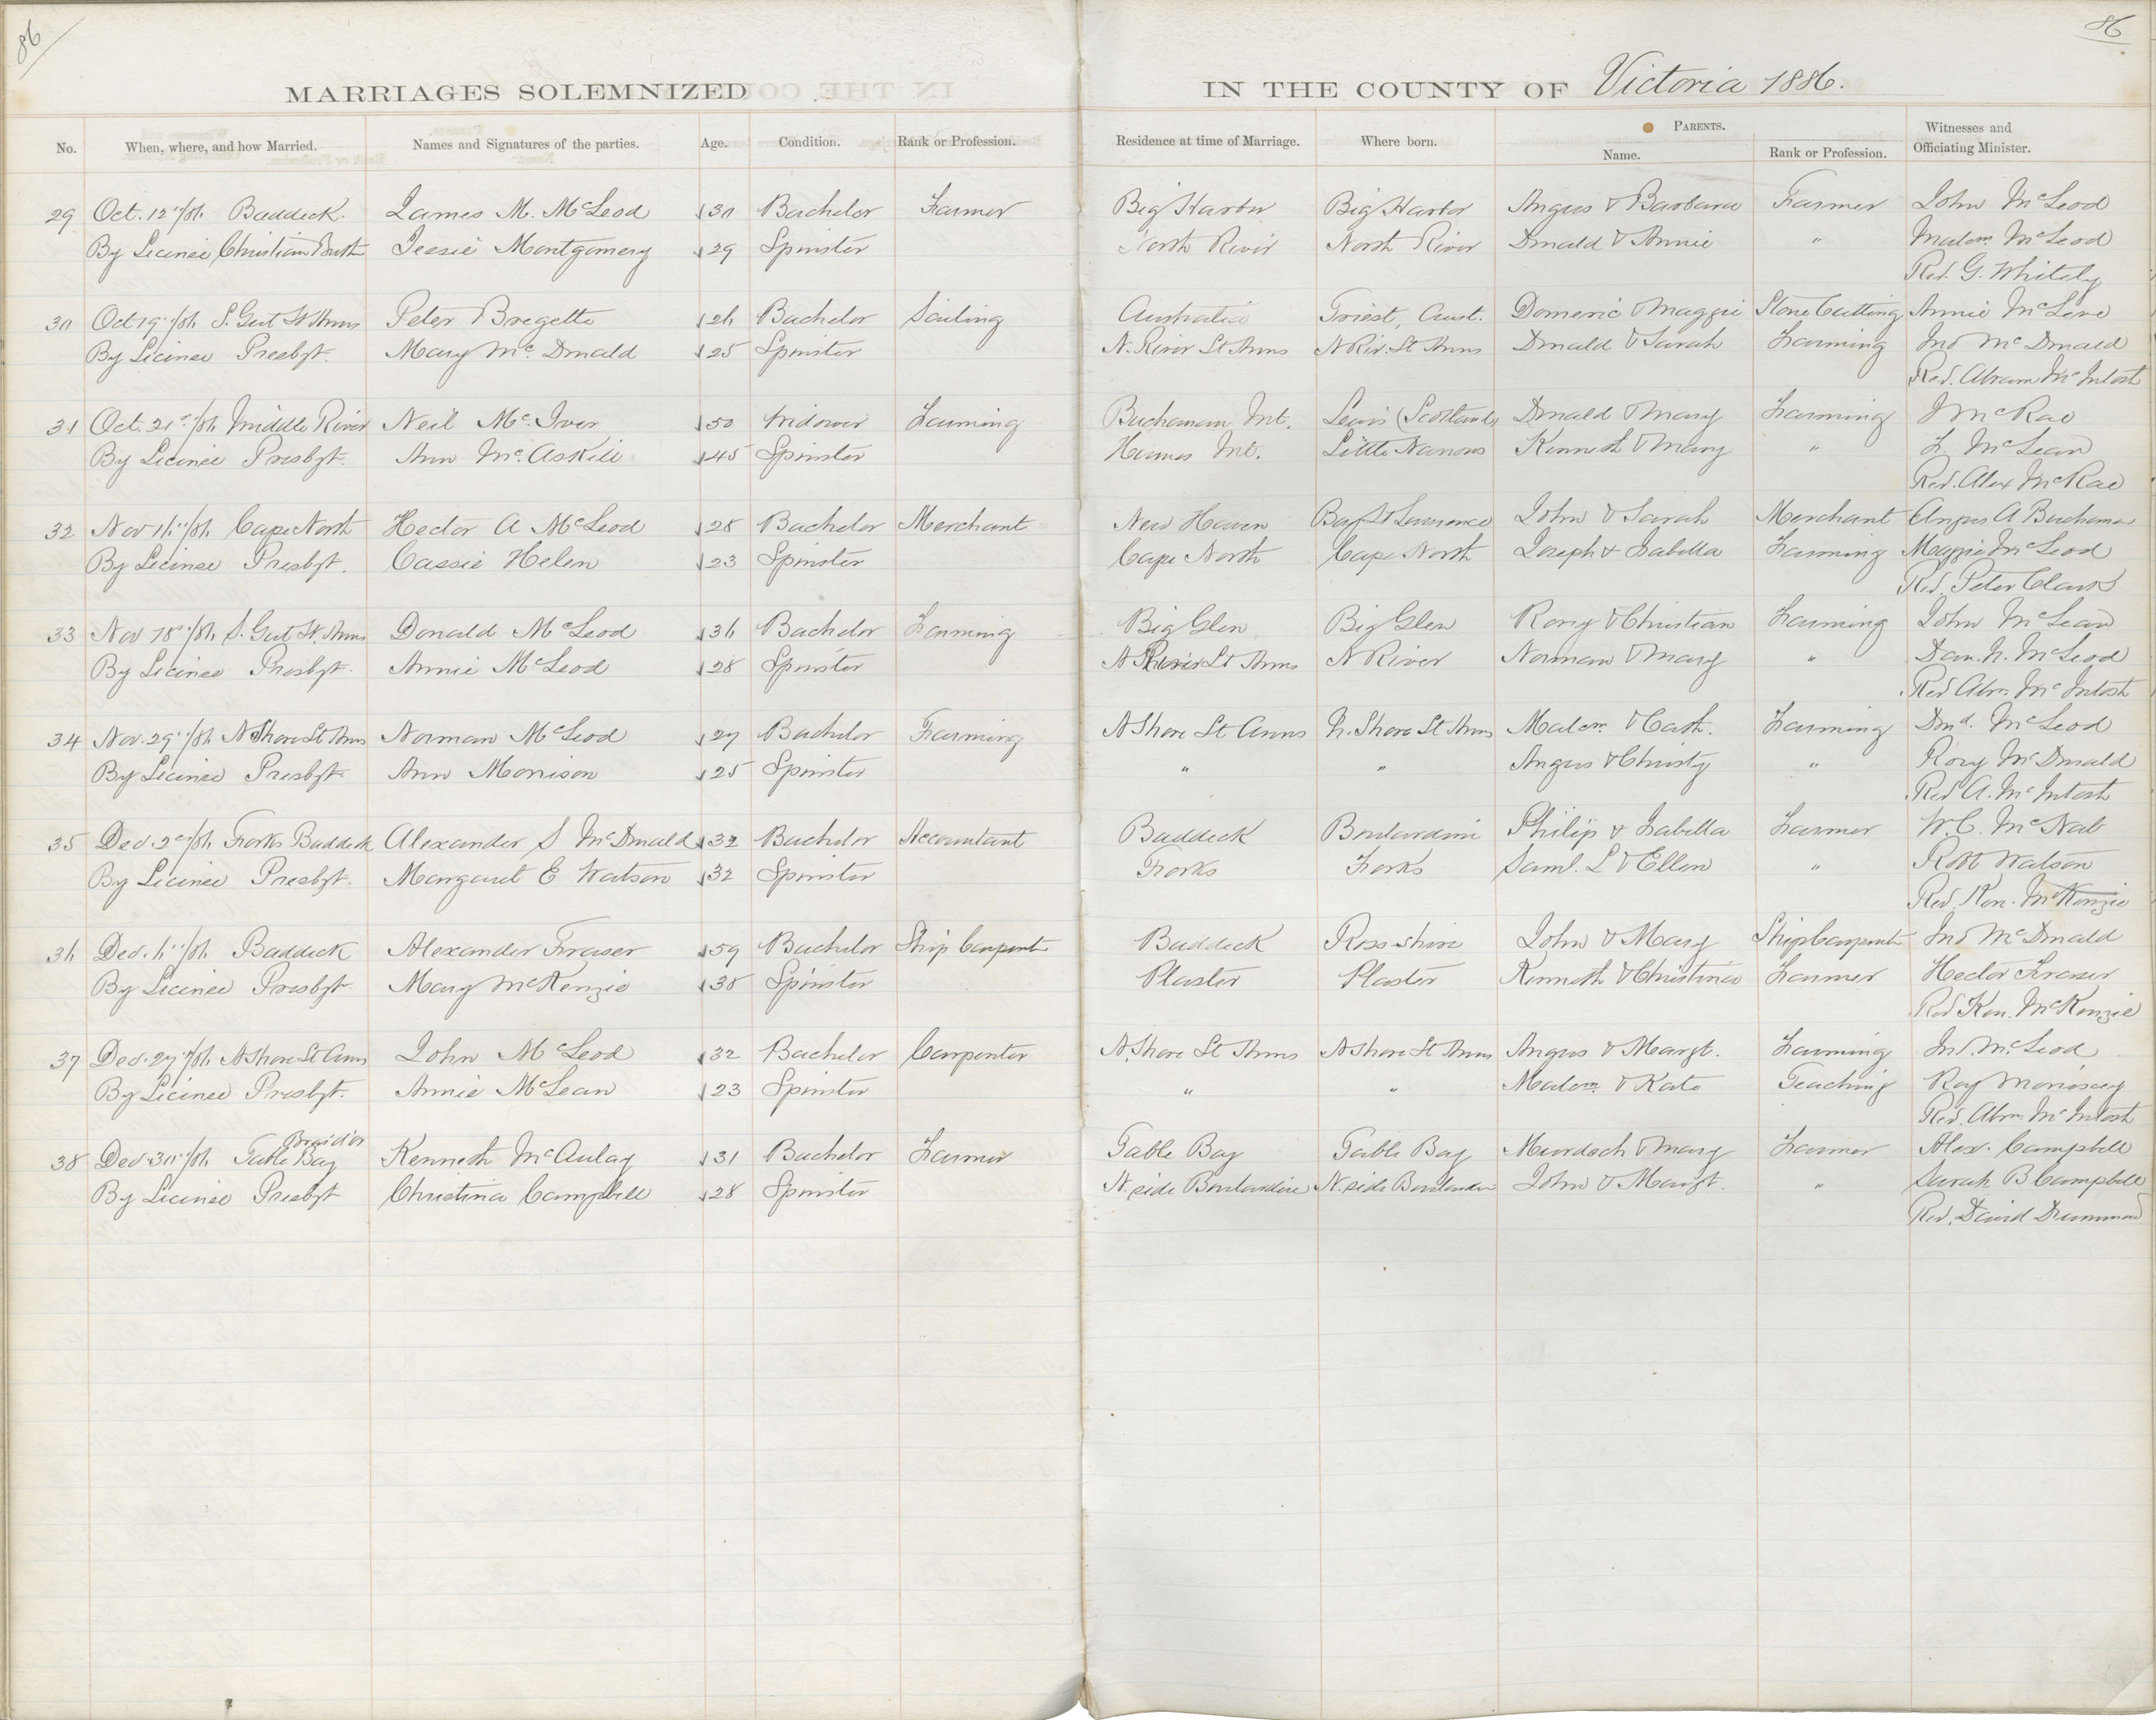 86
86
MARRIAGES SOLEMNIZED IN THE COUNTY OF Victoria 1886.
No. When, where, and how Married. Names and Signatures of the parties. Age. Condition. Rank or Profession. Residence at time of Marriage. Where born. PARENTS. Name. Rank or Profession. Witnesses and Officiating Minister.
29 Oct. 12"/86 Baddeck. James M. McLeod 30 Bachelor Farmer Big Harbor Big Harbor Angus & Barbara Farmer John McLeod
By Licinse Christian Jessie Montgomery 29 Spinster North River North River Donald & Annie " Malcm McLeod
Rev. G. Whitely
30 Oct 19"/86 S. Gut St Anns Peter Bregette 26 Bachelor Sailing Australia Triest, Aust. Domenic & Maggie Stone Cutting Annie
By Licinse Presbyt. Mary McDonald 25 Spinster N. River St Anns N Riv. St Anns Donald & Sarah Farming Jno McDonald
Rev. Abram McIntosh
31 Oct. 21st/86 Middle River Neil McIver 50 Widower Farming Buchanan Mt. Lewis (Scotland) Donald & Mary Farming J McRae
By Licinse Presbyt. Ann McAskill 45 Spinster Humes Mt. Little Narrows Kenneth & Mary " F. McLean
Rev. Alex McRae
32 Nov 16"/86 Cape North Hector A McLeod 28 Bachelor Merchant New Haven Bay St Lawrence John & Sarah Merchant Angus A Buchanan
By Licinse Presbyt. Cassie Helen 23 Spinster Cape North Cape North Joseph & Isabella Farming Maggie McLeod
Rev. Peter Clark
33 Nov 18"/86 S. Gut St. Anns Donald McLeod 36 Bachelor Farming Big Glen Big Glen Rory & Christian Farming John McLean
By Licinse Presbyt. Annie McLeod 28 Spinster N River St Anns N River Norman & Mary " Dan. N. McLeod
Rev Abm. McIntosh
34 Nov. 29"/86 N Shore St Anns Norman McLeod 27 Bachelor Farming N Shore St Anns N. Shore St Anns Malcm & Cath. Farming Dond. McLeod
By Licinse Presbyt. Ann Morrison 25 Spinster " " Angus & Christy " Rory McDonald
Rev A. McIntosh
35 Dec. 2d/86 Forks Baddeck Alexander S McDonald 32 Bachelor Accountant Baddeck Boulardrie Philip & Isabella Farmer W.C. McNab
By Licinse Presbyt. Margaret E Watson 32 Spinster Forks Forks Saml. L & Ellen " Robt Watson
Rev. Ken. McKenzie
36 Dec. 6"/86 Baddeck Alexander Fraser 59 Bachelor Ship Carpent Baddeck Ross-shire John & Mary Ship Carpent Jno McDonald
By Licinse Presbyt. Mary McKenzie 38 Spinster Plaster Plaster Kenneth & Christina Farmer Hector Fraser
Rev Ken. McKenzie
37 Dec. 27"/86 N Shore St Anns John McLeod 32 Bachelor Carpenter N. Shore St Anns N Shore St Anns Angus & Margt. Farming Jno. McLeod
By Licinse Presbyt. Annie McLean 23 Spinster " " Malcm & Kate Teaching
Rev. Abm. McIntosh
38 Dec 30"/86 Table Bay Kenneth McAulay 31 Bachelor Farmer Table Bay Table Bay Murdoch & Mary Farmer Alex. Campbell
By Licinse Presbyt Christina Campbell 28 Spinster N. side Boulardrie N. side Boulardrie John & Margt. " Sarah B Campbell
Rev. David Drummond